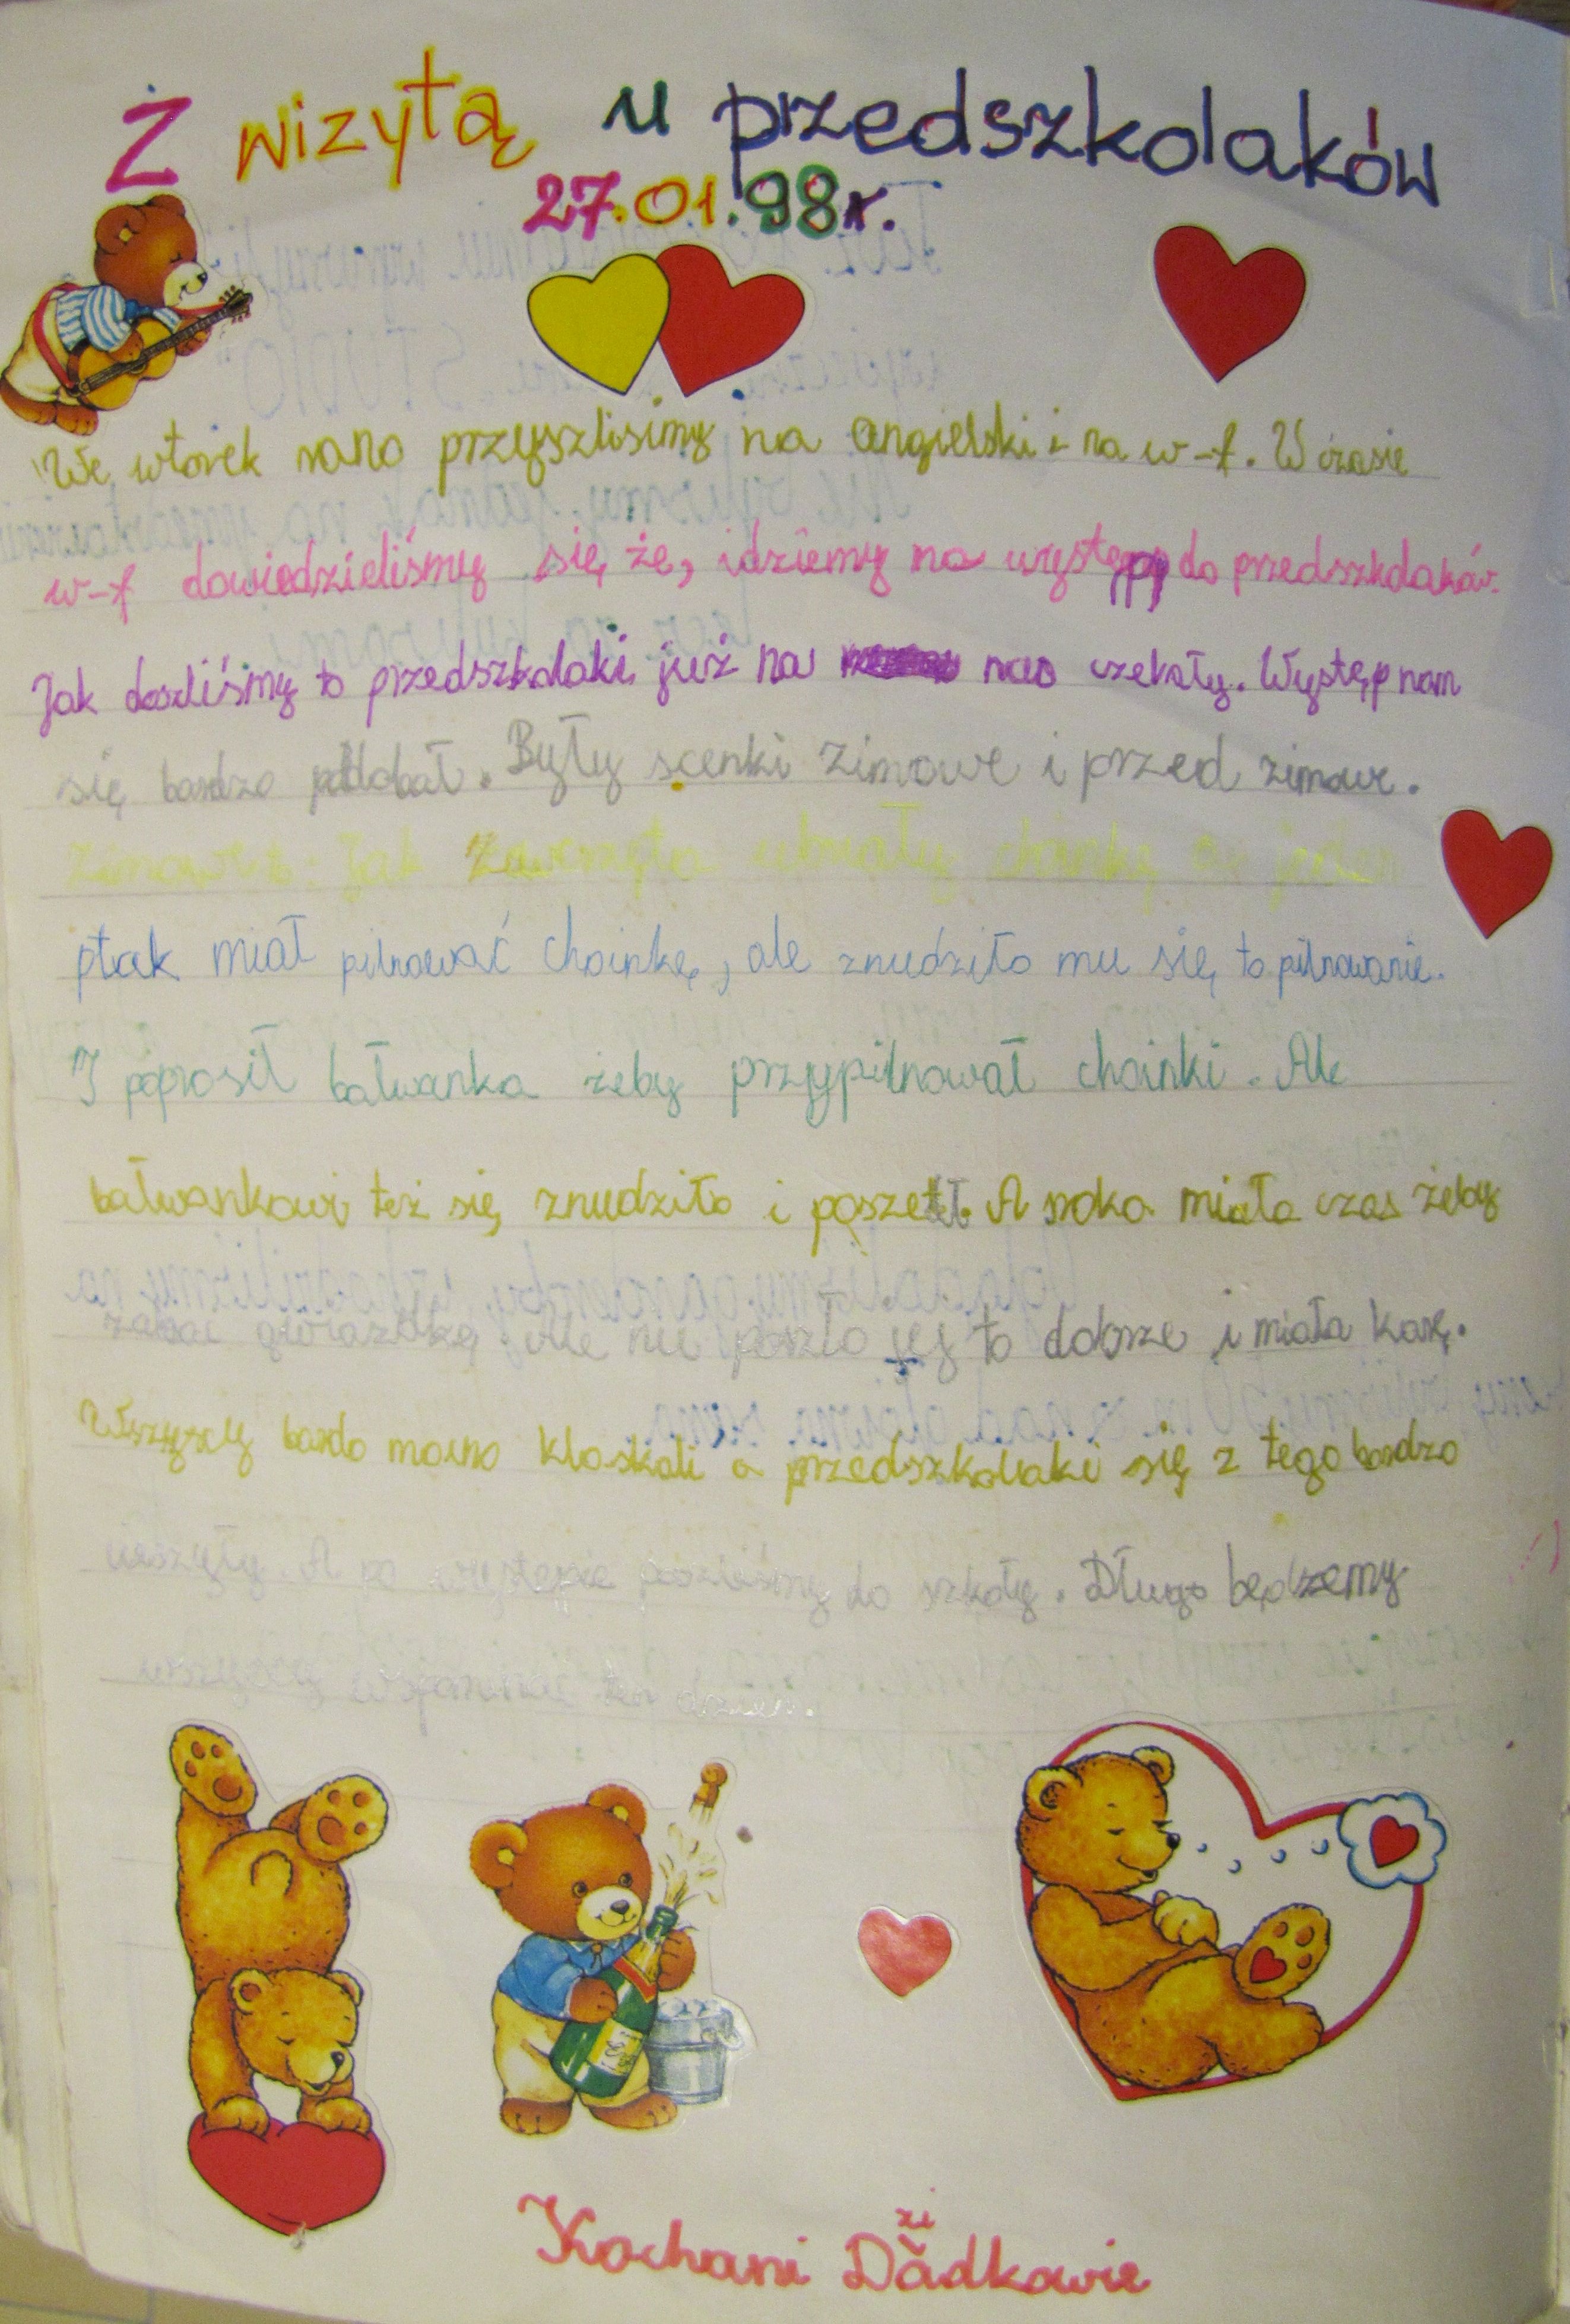 Z wizytą u przedszkolaków
27.01.98r.
We wtorek rano przyszlisimy na angielski i na w-f. W czasie
w-f dowiedzieliśmy się że, idziemy na występy do przedszkolaków.
Jak doszliśmy to przedszkolaki już na nas czekały. Występ nam
się bardzo podobał. Były scenki zimowe i przed zimowe.
Zimowe: Jak zwierzęta ubrały choinkę a jeden
ptak miał pilnować choinkę, ale znudziło mu się to pilnowanie.
I poprosił bałwanka żeby przypilnował choinki. Ale
bałwankowi też się znudziło i poszetł. A sroka miała czas żeby
zabrać gwiazdkę. Ale nie poszło jej to dobrze i miała karę.
Wszyscy bardo mocno kloskali a przedszkolaki się z tego bardzo
cieszyły. A po występie poszliśmy do szkoły. Długo będzemy
wszyscy wspominać ten dzień.
Kochani Dziadkowie